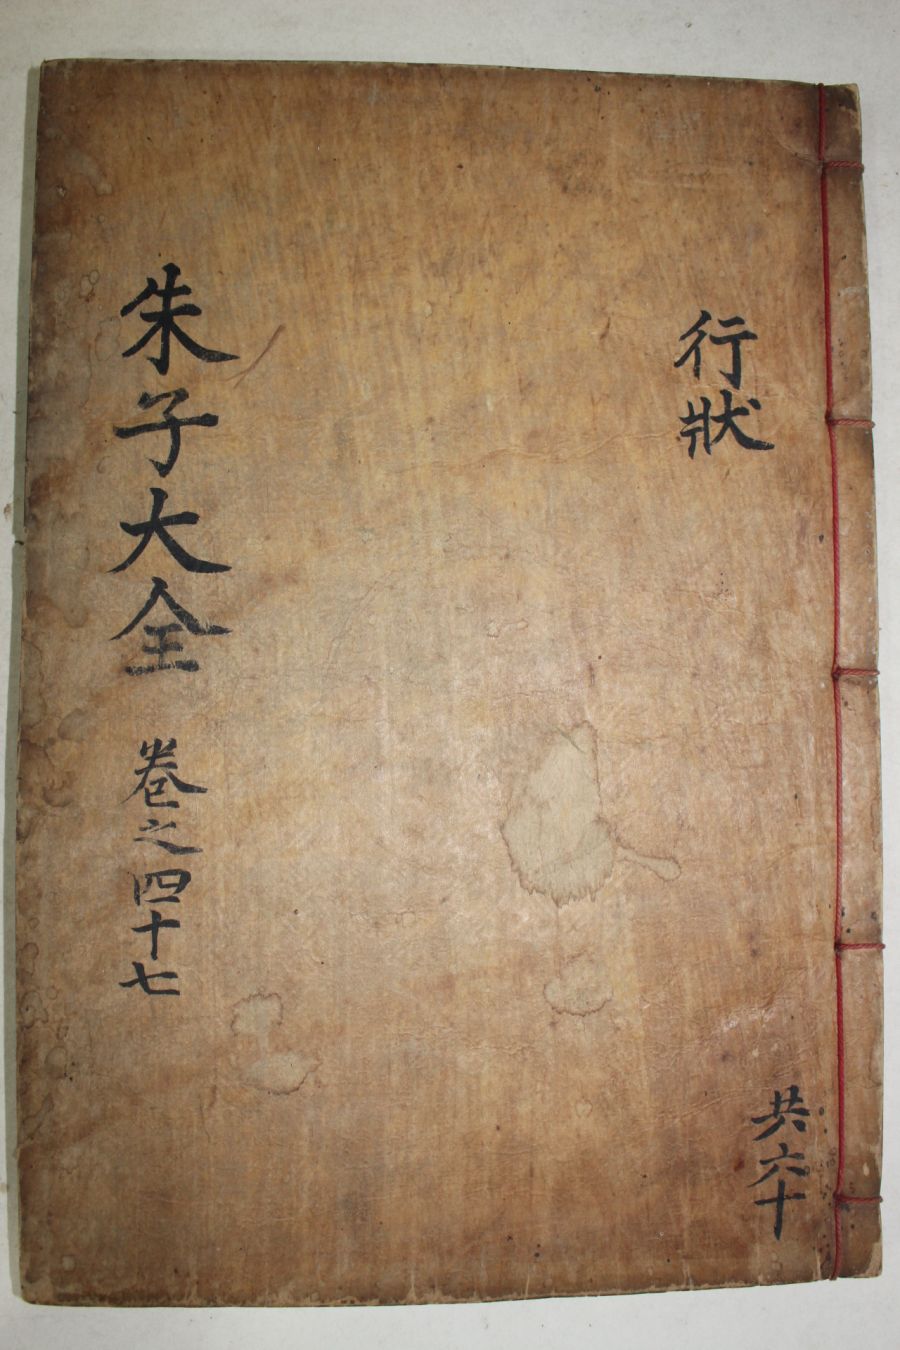 行狀
共六十
朱子大全 卷之四十七